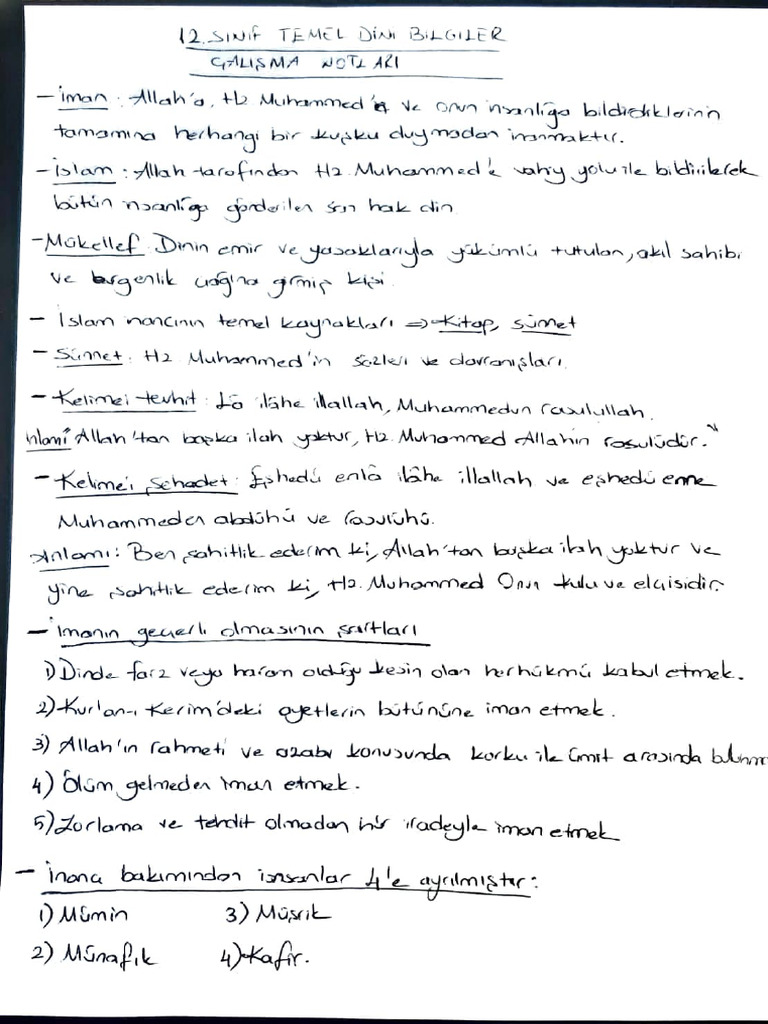 12. SINIF TEMEL DİNİ BİLGİLER
ÇALIŞMA NOTLARI
- İman : Allah'a, Hz Muhammed'e ve onun insanlığa bildirdiklerinin
tamamına herhangi bir kuşku duymadan inanmaktır.
- İslam : Allah tarafından Hz. Muhammed'e vahiy yolu ile bildirilerek
bütün insanlığa gönderilen son hak din
- Mükellef: Dinin emir ve yasaklarıyla yükümlü tutulan, akıl sahibi
ve ergenlik çağına girmiş kişi.
- İslam inancının temel kaynakları ⇒ Kitap, sünnet
- Sünnet: Hz Muhammed'in sözleri ve davranışları.
- Kelimei tevhit : Lâ ilâhe illallah, Muhammedun rasulullah.
Anlamı Allah'tan başka ilah yoktur, Hz. Muhammed Allahın rasulüdür."
- Kelime'i şehadet: Eşhedü enlâ ilâhe illallah ve eşhedü enne
Muhammeden abdühü ve rasulühü.
Anlamı : Ben şahitlik ederim ki, Allah'tan başka ilah yoktur ve
yine şahitlik ederim ki, Hz. Muhammed Onun kulu ve elçisidir.
- İmanın geçerli olmasının şartları
1) Dinde farz veya haram olduğu kesin olan her hükmü kabul etmek.
2) Kur'an-ı Kerim'deki ayetlerin bütününe iman etmek.
3) Allah'ın rahmeti ve azabı konusunda korku ile ümit arasında bulunm
4) Ölüm gelmeden iman etmek.
5) Zorlama ve tehdit olmadan hür iradeyle iman etmek
- İnanç bakımından insanlar 4'e ayrılmıştır:
1) Mümin 3) Müşrik
2) Münafık 4) Kafir.